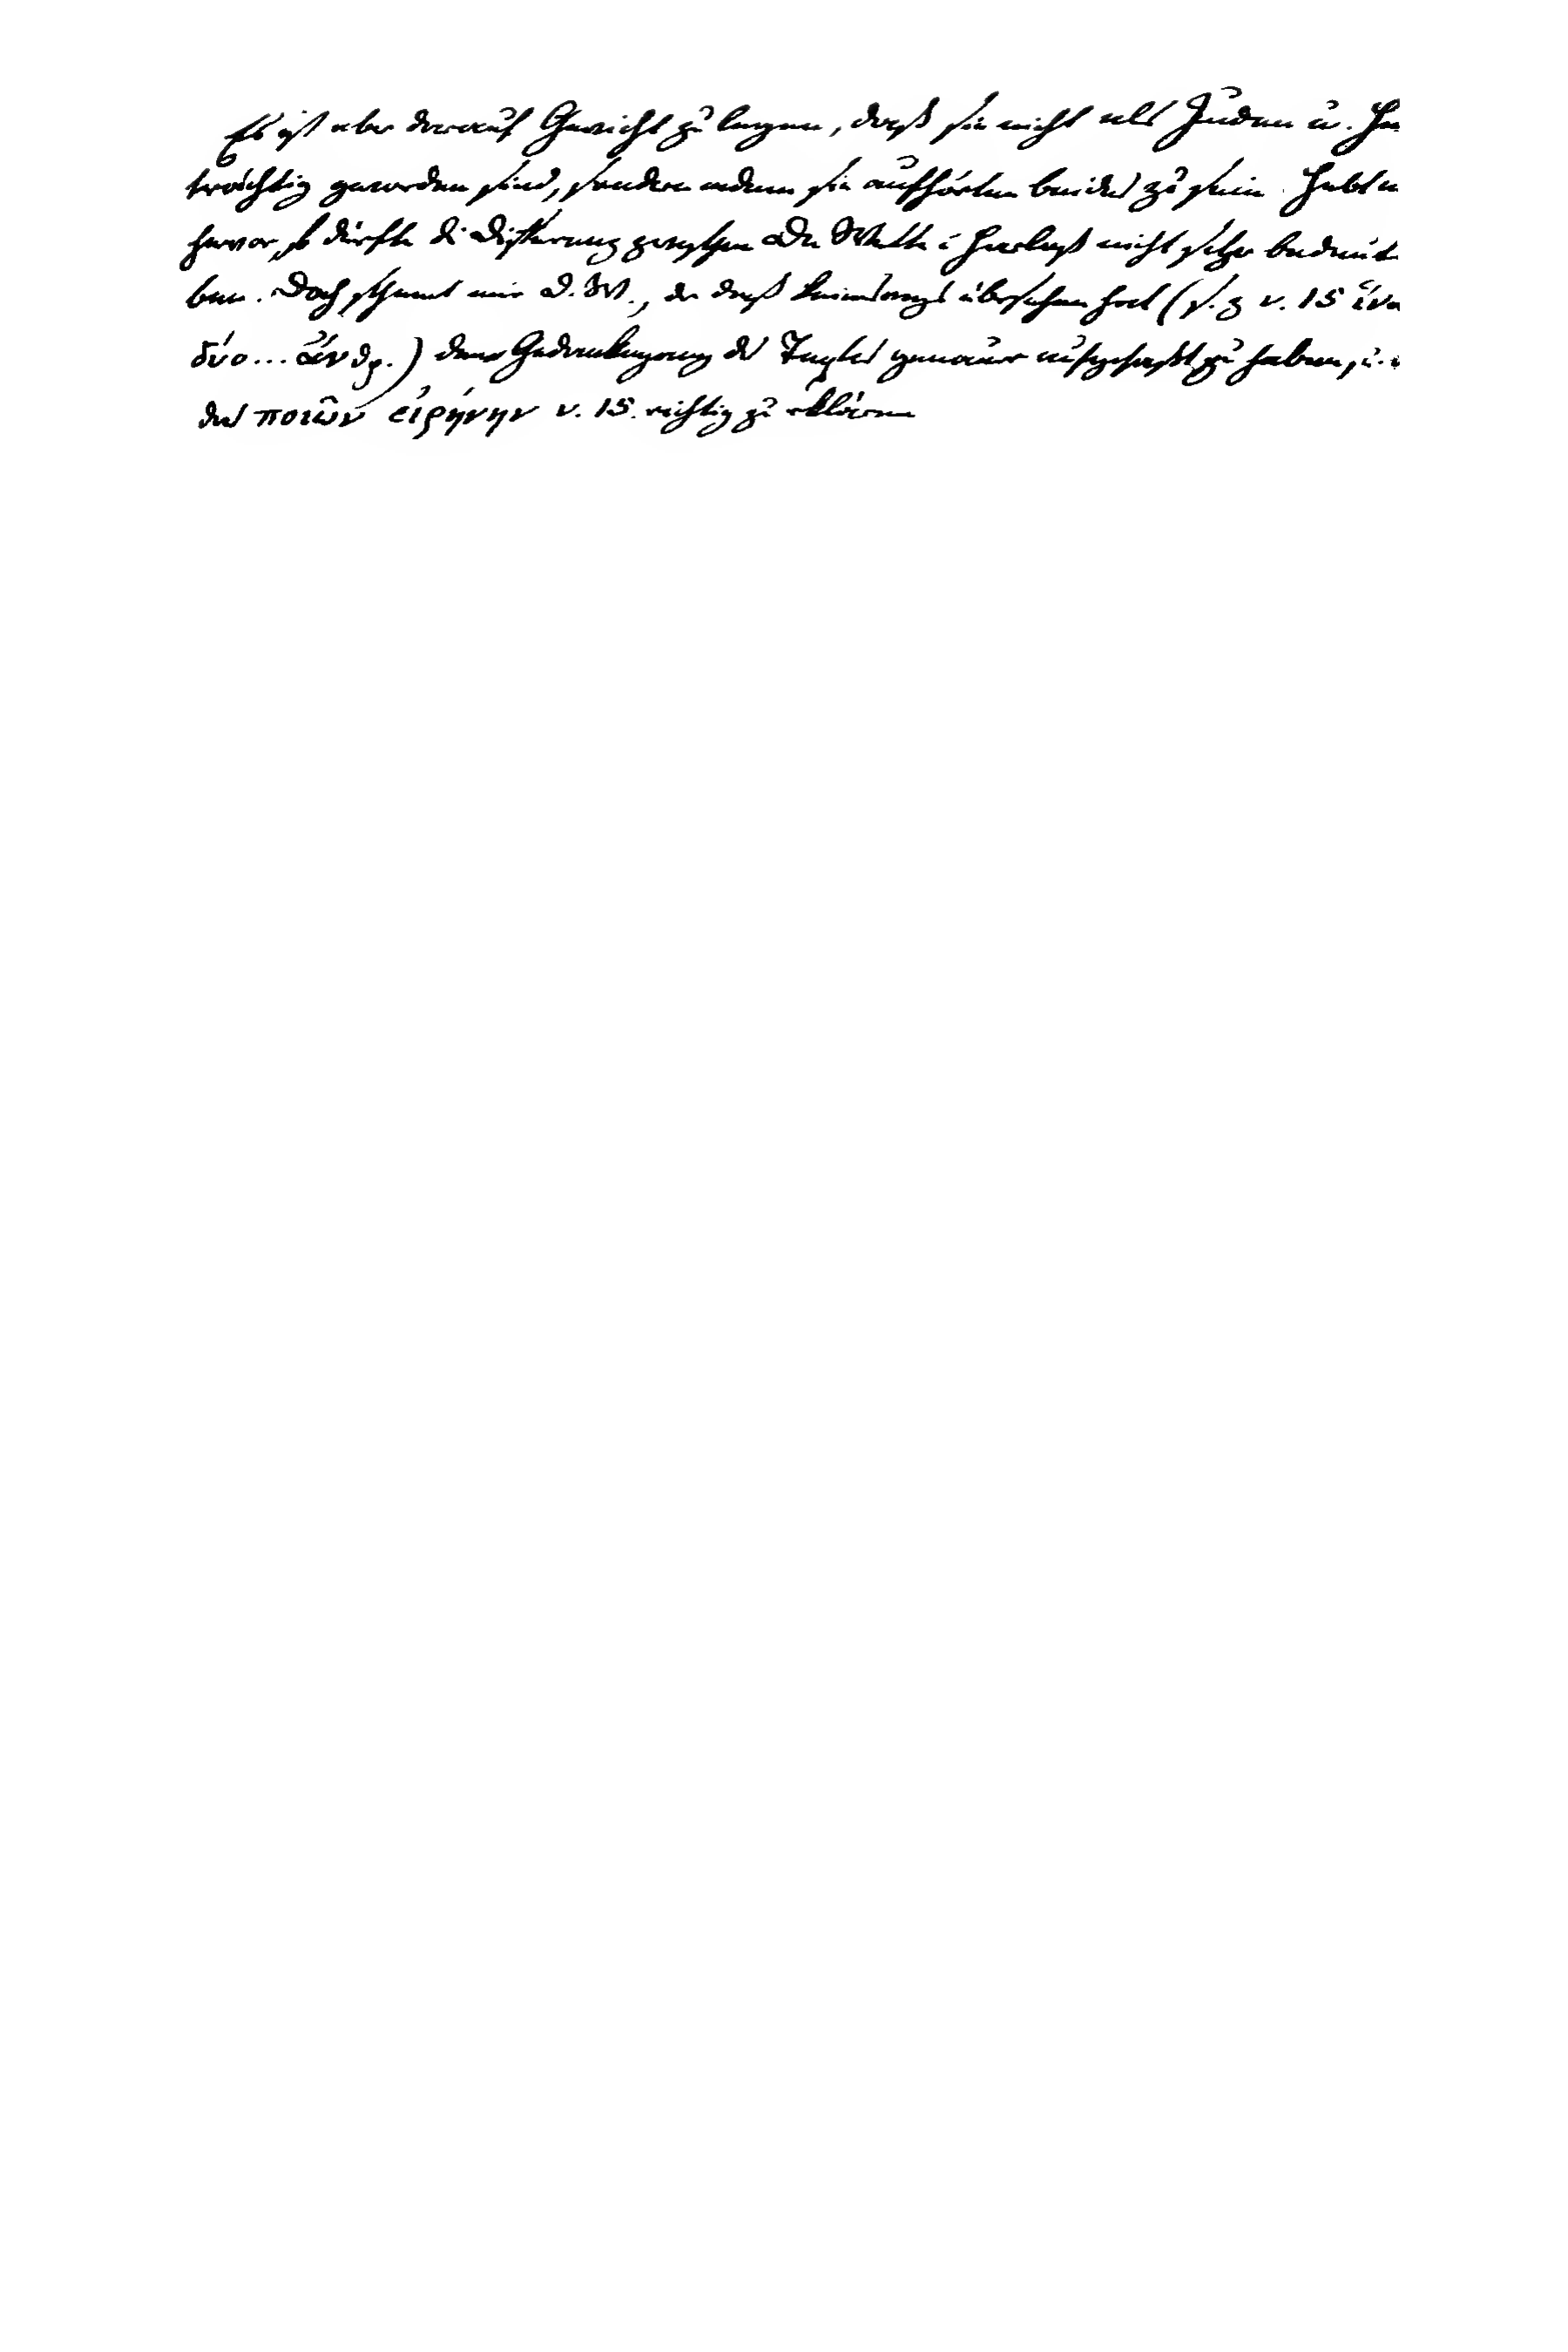 Es ist aber darauf Gewicht zu legen, daß sie nicht als Juden u. He
trächtig geworden sind, sondern indem sie aufhörten beides zu sein. Hebt
hervor, so dürfte die Differenz zwischen De Wette u Harleß nicht sehr bedeut
ben. Doch scheint mir d. W., der daß keineswegs übersehen hat (s. z v. 15 ἵνα
δύο... ἄνθρ.) den Gedankengang des Textes genauer aufgefaßt zu haben, u.
das ποιῶν εἰρήνην v. 15. richtig zu erklären